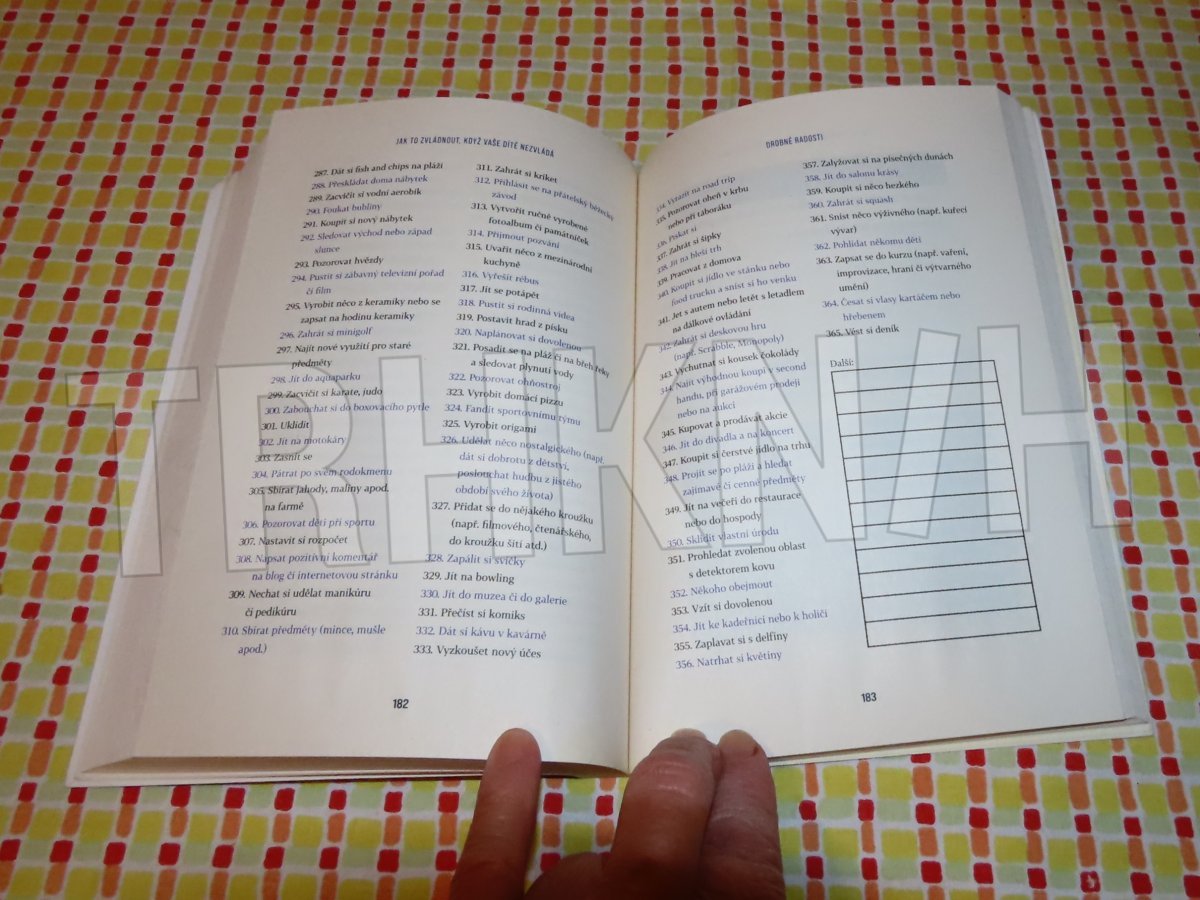 JAK TO ZVLÁDNOUT, KDYŽ VAŠE DÍTĚ NEZVLÁDÁ
287. Dát si fish and chips na pláži
288. Přeskládat doma nábytek
289. Zacvičit si vodní aerobik
290. Foukat bubliny
291. Koupit si nový nábytek
292. Sledovat východ nebo západ
slunce
293. Pozorovat hvězdy
294. Pustit si zábavný televizní pořad
či film
295. Vyrobit něco z keramiky nebo se
zapsat na hodinu keramiky
296. Zahrát si minigolf
297. Najít nové využití pro staré
předměty
298. Jít do aquaparku
299. Zacvičit si karate, judo
300. Zabouchat si do boxovacího pytle
301. Uklidit
302. Jít na motokáry
303. Zasnít se
304. Pátrat po svém rodokmenu
305. Sbírat jahody, maliny apod.
na farmě
306. Pozorovat děti při sportu
307. Nastavit si rozpočet
308. Napsat pozitivní komentář
na blog či internetovou stránku
309. Nechat si udělat manikúru
či pedikúru
310. Sbírat předměty (mince, mušle
apod.)
311. Zahrát si kriket
312. Přihlásit se na přátelský běžecký
závod
313. Vytvořit ručně vyrobené
fotoalbum či památníček
314. Přijmout pozvání
315. Uvařit něco z mezinárodní
kuchyně
316. Vyřešit rébus
317. Jít se potápět
318. Pustit si rodinná videa
319. Postavit hrad z písku
320. Naplánovat si dovolenou
321. Posadit se na pláž či na břeh řeky
a sledovat plynutí vody
322. Pozorovat ohňostroj
323. Vyrobit domácí pizzu
324. Fandit sportovnímu týmu
325. Vyrobit origami
326. Udělat něco nostalgického (např.
dát si dobrotu z dětství,
poslouchat hudbu z jistého
období svého života)
327. Přidat se do nějakého kroužku
(např. filmového, čtenářského,
do kroužku šití atd.)
328. Zapálit si svíčky
329. Jít na bowling
330. Jít do muzea či do galerie
331. Přečíst si komiks
332. Dát si kávu v kavárně
333. Vyzkoušet nový účes
182
DROBNÉ RADOSTI
334. Vyrazit na road trip
335. Pozorovat oheň v krbu
nebo při táboráku
336. Pískat si
337. Zahrát si šipky
338. Jít na bleší trh
339. Pracovat z domova
340. Koupit si jídlo ve stánku nebo
food trucku a sníst si ho venku
341. Jet s autem nebo letět s letadlem
na dálkové ovládání
342. Zahrát si deskovou hru
(např. Scrabble, Monopoly)
343. Vychutnat si kousek čokolády
344. Najít výhodnou koupi v second
handu, při garážovém prodeji
nebo na aukci
345. Kupovat a prodávat akcie
346. Jít do divadla a na koncert
347. Koupit si čerstvé jídlo na trhu
348. Projít se po pláži a hledat
zajímavé či cenné předměty
349. Jít na večeři do restaurace
nebo do hospody
350. Sklidit vlastní úrodu
351. Prohledat zvolenou oblast
s detektorem kovu
352. Někoho obejmout
353. Vzít si dovolenou
354. Jít ke kadeřnici nebo k holiči
355. Zaplavat si s delfíny
356. Natrhat si květiny
357. Zalyžovat si na písečných dunách
358. Jít do salonu krásy
359. Koupit si něco hezkého
360. Zahrát si squash
361. Sníst něco výživného (např. kuřecí
vývar)
362. Pohlídat někomu děti
363. Zapsat se do kurzu (např. vaření,
improvizace, hraní či výtvarného
umění)
364. Česat si vlasy kartáčem nebo
hřebenem
365. Vést si deník
Další:
183
TRHKNIH